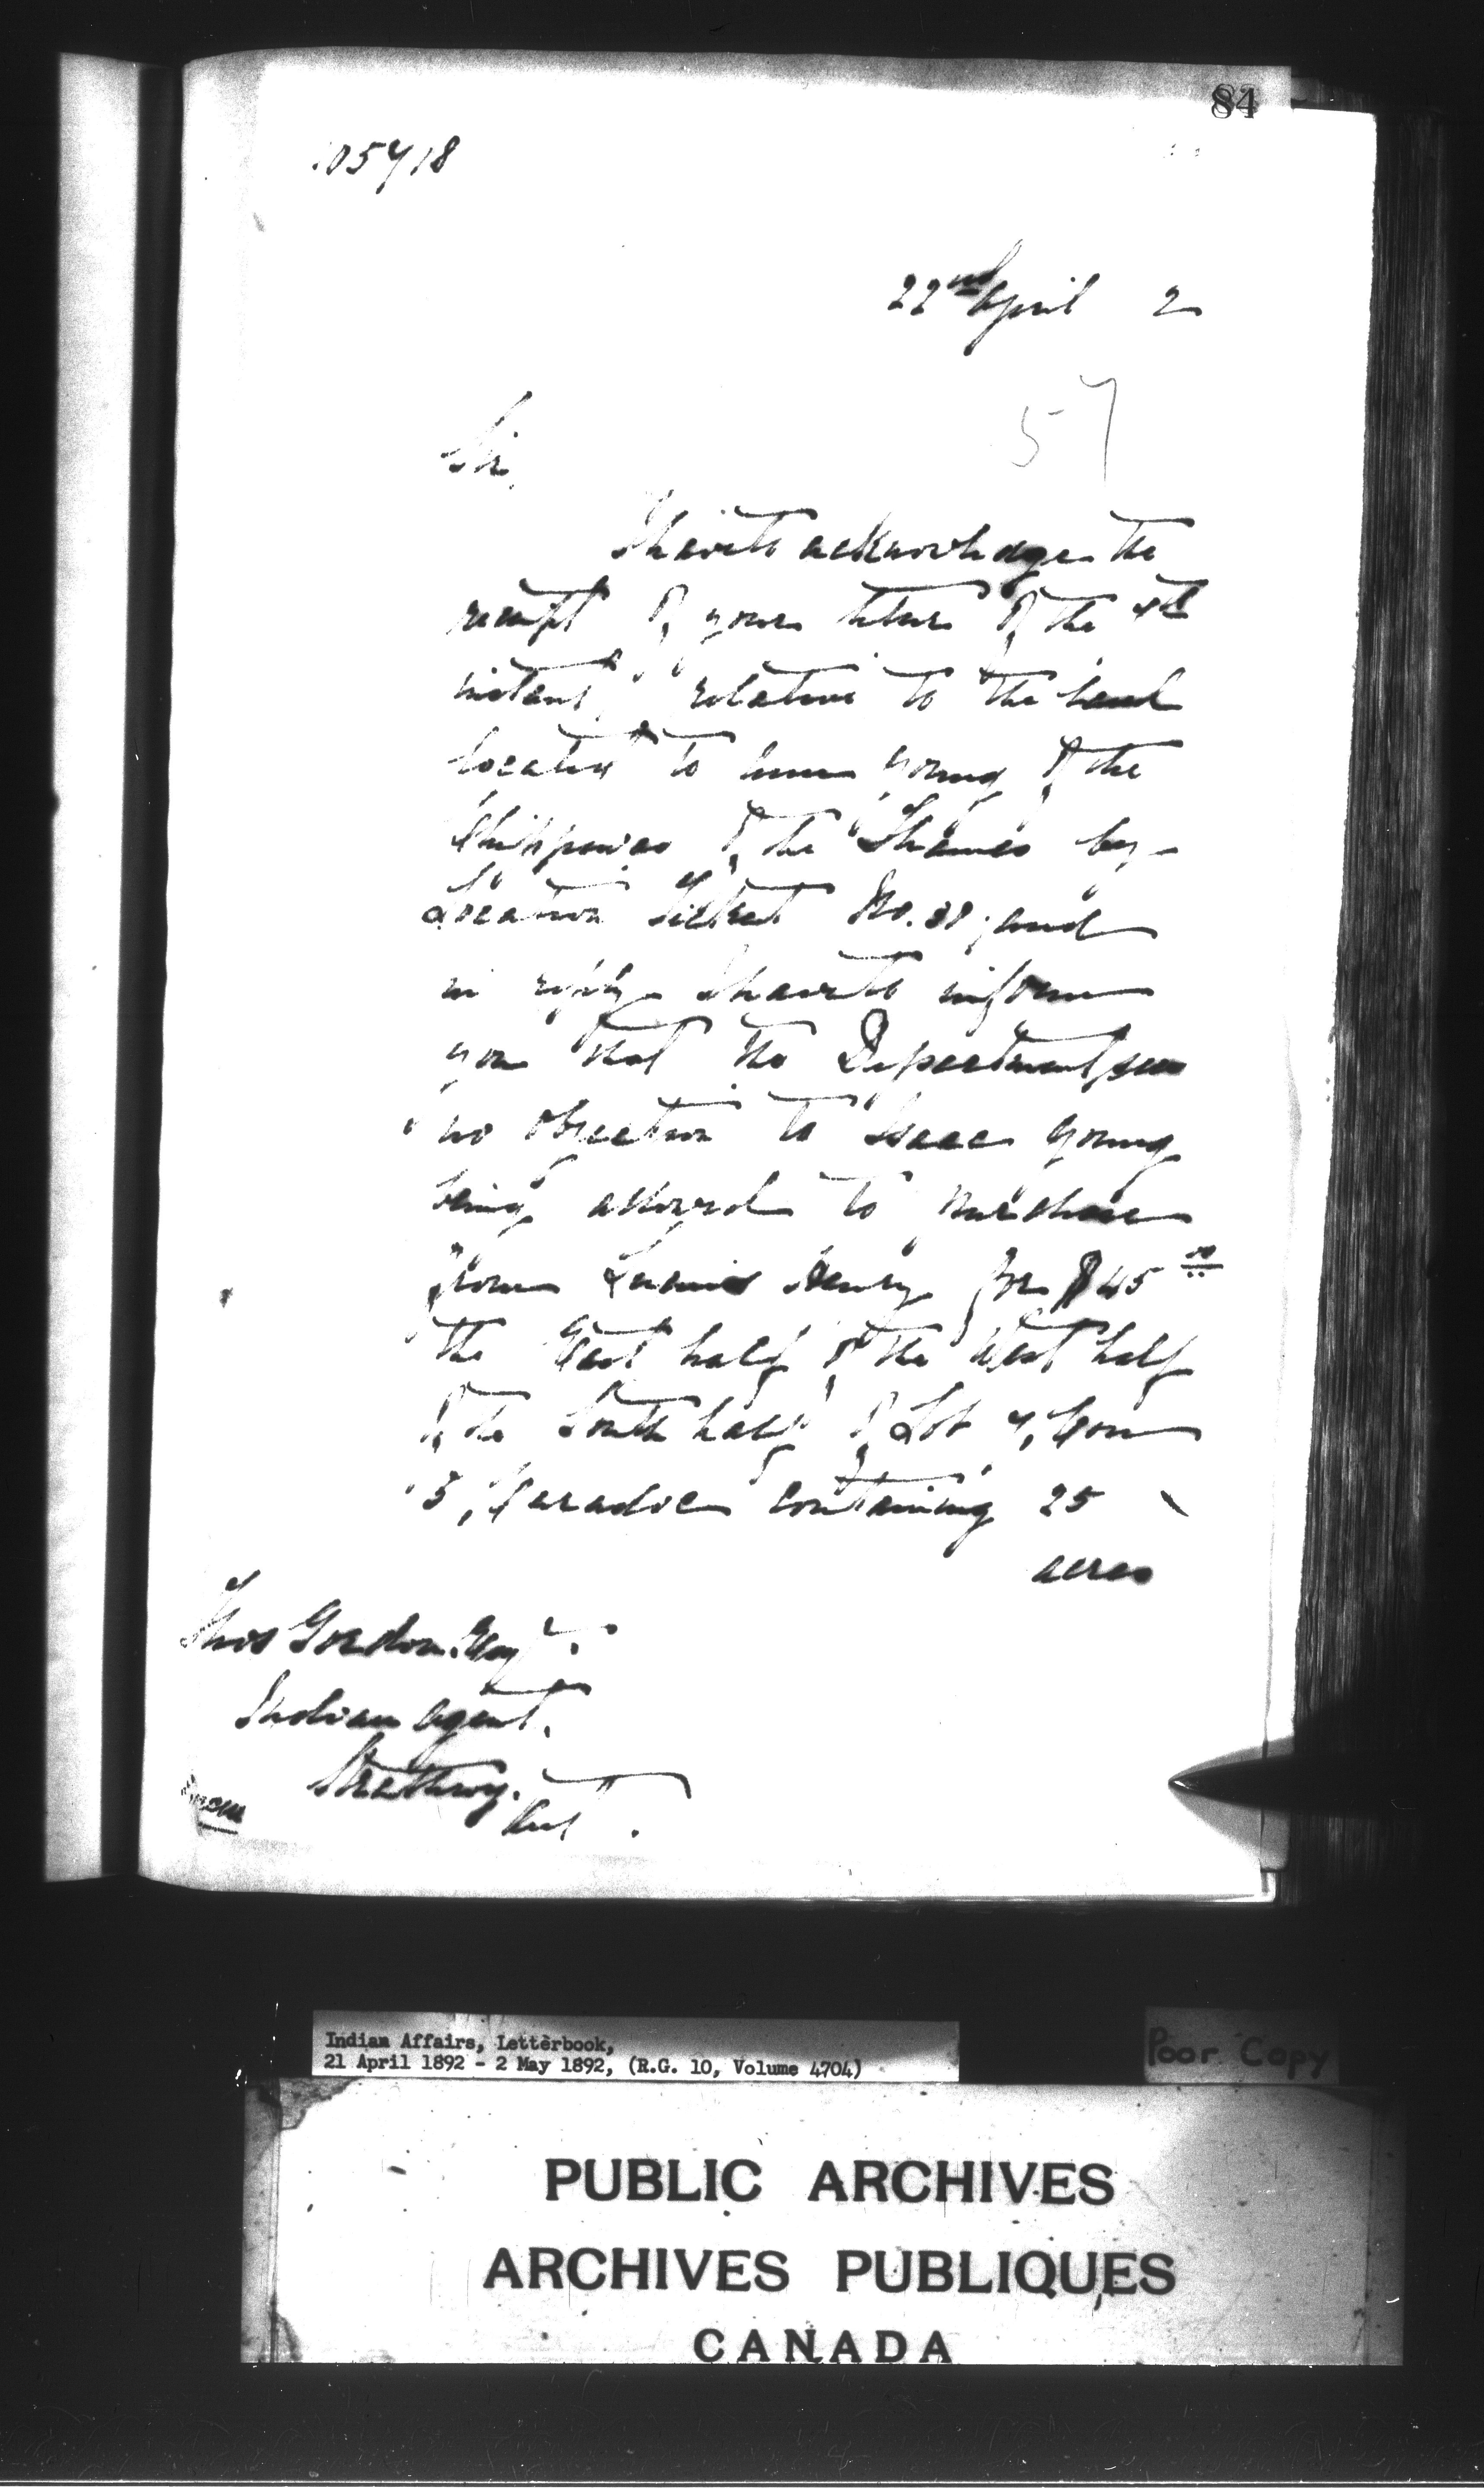 84
105718
22nd April 2
57
Sir,
I have to acknowledge the
receipt of your letter of the
instant, relative to the land
located to young of the
Chippewas of the Thames by
Location Ticket No. and
in reply I have to inform
you that the Department sees
no objection to Isaac Young
being allowed to purchase
from Henry for $45 00
the East half of the West half
of the South half of Lot Con
5, Caradoc containing 25
acres
Thos Gordon Esq
Indian Agent,
Strathroy.
Ont.
Indian Affairs, Letterbook,
21 April 1892 - 2 May 1892, (R.G. 10, Volume 4704)
Poor Copy
PUBLIC ARCHIVES
ARCHIVES PUBLIQUES
CANADA